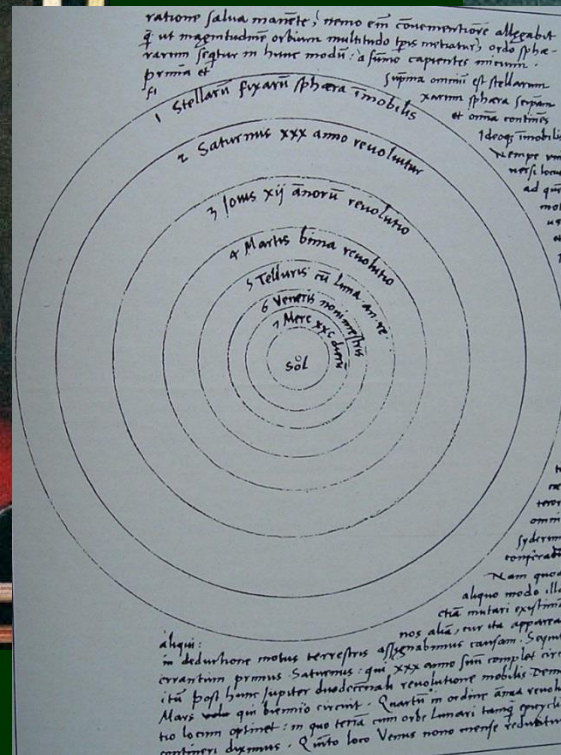 ratione salva manēte, nemo em̄ cōvenientiorē allegabit
q̄ ut magnitudinē orbium multitudo tp̄is metiatur, ordo sphæ-
rarum seq̄tur in hunc modū: a sūmo capientes inicium.
prima et suprma omniū est stellarum
fi xarum sphæra seip̄am
et omīa continēs
Ideoq; īmobilis
Nempe
versi locus
ad quē
1 Stellarū fixarū sphæra īmobilis
2 Saturnus xxx anno revolvitur
3 Iovis xij ānorū revolutio
4 Martis bima revolutio
5 Telluris cū Luna an. re.
6 Veneris nonimestris
7 Merc xxc dierū
Sol
omni
syderum
Nam quod
aliquo modo
etiā mutari existim
nos aliā, cur ita appareat
aliqui:
in deductione motus terrestris assignabimus causam. Sequi
errantium primus Saturnus: qui xxx anno suū complet circ
itū post hunc Jupiter duodecennali revolutione mobilis Dein
Mars qui biennio circuit. Quartū in ordine anna revolu
tio locum optinet: in quo terrā cum orbe Lunari tamq̄ epicyclio
contineri diximus. Quinto loco Venus nono mense reducitur